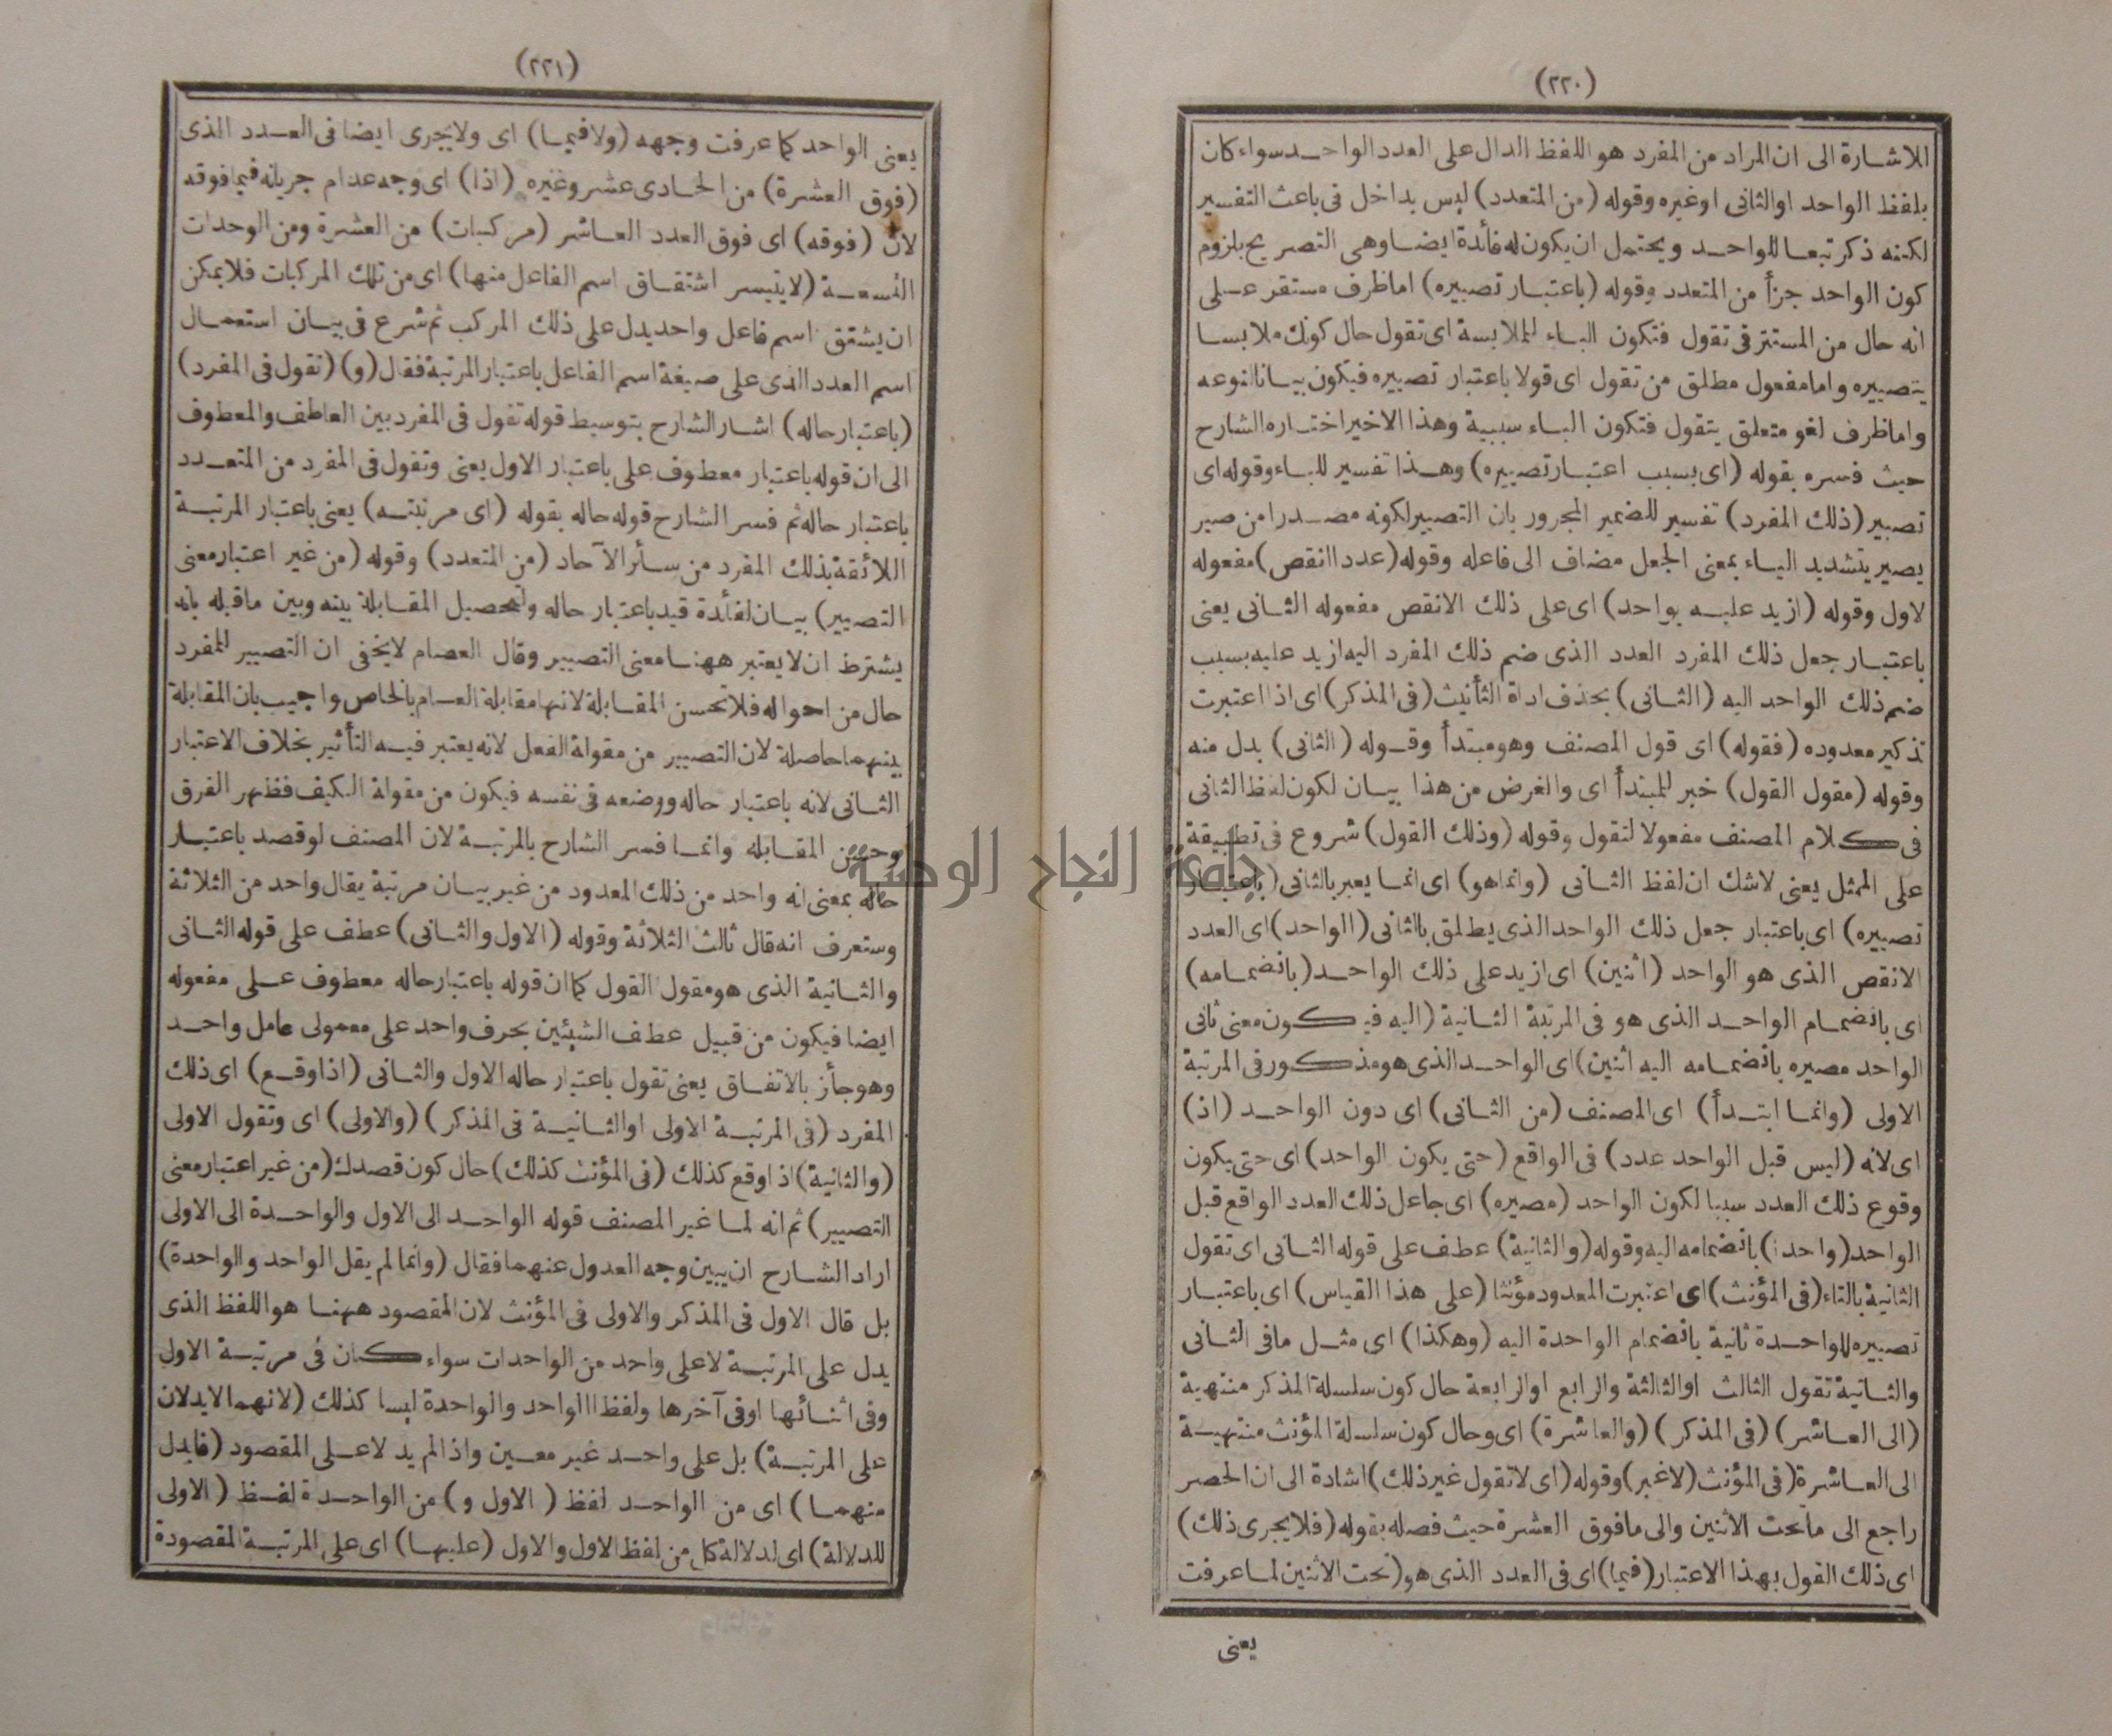 (٢٢٠)
الاشارة الى ان المراد من المفرد هو اللفظ الدال على العدد الواحد سواء كان
بلفظ الواحد او الثانى او غيره وقوله (من المتعدد) ليس بداخل فى باعث التفسير
لكنه ذكر تبعا للواحد ويحتمل ان يكون له فائدة ايضا وهى التصريح بلزوم
كون الواحد جزأ من المتعدد وقوله (باعتبار تصييره) اما ظرف مستقر على
انه حال من المستتر فى تقول فتكون الباء للملابسة اى تقول حال كونك ملابسا
بتصييره واما مفعول مطلق من تقول اى قولا باعتبار تصييره فيكون بيانا لنوعه
واما ظرف لغو متعلق بتقول فتكون الباء سببية وهذا الاخير اختاره الشارح
حيث فسره بقوله (اى بسبب اعتبار تصييره) وهذا تفسير للباء وقوله اى
تصيير (ذلك المفرد) تفسير للضمير المجرور بان التصيير لكونه مصدرا من صير
يصير بتشديد الياء بمعنى الجعل مضاف الى فاعله وقوله (عددا انقص) مفعوله
لاول وقوله (ازيد عليه بواحد) اى على ذلك الانقص مفعوله الثانى يعنى
باعتبار جعل ذلك المفرد العدد الذى ضم ذلك المفرد اليه ازيد عليه بسبب
ضم ذلك الواحد اليه (الثانى) بحذف اداة التأنيث (فى المذكر) اى اذا اعتبرت
تذكير معدوده (فقوله) اى قول المصنف وهو مبتدأ وقوله (الثانى) بدل منه
وقوله (مقول القول) خبر للمبتدأ اى والغرض من هذا بيان لكون لفظ الثانى
فى كلام المصنف مفعولا لتقول وقوله (وذلك القول) شروع فى تطبيقة
على الممثل يعنى لاشك ان لفظ الثانى (وانما هو) اى انما يعبر بالثانى (باعتبار
تصييره) اى باعتبار جعل ذلك الواحد الذى يطلق بالثانى (الواحد) اى العدد
الانقص الذى هو الواحد (اثنين) اى ازيد على ذلك الواحد (بانضمامه)
اى بانضمام الواحد الذى هو فى المرتبة الثانية (اليه فيكون معنى ثانى
الواحد مصيره بانضمامه اليه اثنين) اى الواحد الذى هو مذكور فى المرتبة
الاولى (وانما ابتدأ) اى المصنف (من الثانى) اى دون الواحد (اذ)
اى لانه (ليس قبل الواحد عدد) فى الواقع (حتى يكون الواحد) اى حتى يكون
وقوع ذلك العدد سببا لكون الواحد (مصيره) اى جاعل ذلك العدد الواقع قبل
الواحد (واحدا) بانضمامه اليه وقوله (والثانية) عطف على قوله الثانى اى تقول
الثانية بالتاء (فى المؤنث) اى اعتبرت المعدود مؤنثا (على هذا القياس) اى باعتبار
تصييره للواحدة ثانية بانضمام الواحدة اليه (وهكذا) اى مثل ما فى الثانى
والثانية تقول الثالث او الثالثة والرابع او الرابعة حال كون سلسلة المذكر منتهية
(الى العاشر) (فى المذكر) (والعاشرة) اى وحال كون سلسلة المؤنث منتهية
الى العاشرة (فى المؤنث (لاغير) وقوله (اى لا تقول غير ذلك) اشادة الى ان الحصر
راجع الى ماتحت الاثنين والى مافوق العشرة حيث فصله بقوله (فلا يجرى ذلك)
اى ذلك القول بهذا الاعتبار (فيما) اى فى العدد الذى هو (تحت الاثنين لما عرفت
يعنى
(٢٢١)
يعنى الواحد كما عرفت وجهه (ولا فيما) اى ولا يجرى ايضا فى العدد الذى
(فوق العشرة) من الحادى عشر وغيره (اذا) اى وجه عدام جريانه فيما فوقه
لان (فوقه) اى فوق العدد العاشر (مركبات) من العشرة ومن الوحدات
التسعة (لا يتيسر اشتقاق اسم الفاعل منها) اى من تلك المركبات فلا يمكن
ان يشتق اسم فاعل واحد يدل على ذلك المركب ثم شرع فى بيان استعمال
اسم العدد الذى على صيغة اسم الفاعل باعتبار المرتبة فقال (و) (تقول فى المفرد)
(باعتبار حاله) اشار الشارح بتوسيط قوله تقول فى المفرد بين العاطف والمعطوف
الى ان قوله باعتبار معطوف على باعتبار الاول يعنى وتقول فى المفرد من المتعدد
باعتبار حاله ثم فسر الشارح قوله حاله بقوله (اى مرتبته) يعنى باعتبار المرتبة
اللائقة بذلك المفرد من سائر الآحاد (من المتعدد) وقوله (من غير اعتبار معنى
التصيير) بيان لفائدة قيد باعتبار حاله ولتحصيل المقابلة بينه وبين ماقبله بانه
يشترط ان لا يعتبر ههنا معنى التصيير وقال العصام لا يخفى ان التصيير للمفرد
حال من احواله فلا تحسن المقابلة لانها مقابلة العام بالخاص واجيب بان المقابلة
بينهما حاصلة لان التصيير من مقولة الفعل لانه يعتبر فيه التأثير بخلاف الاعتبار
الثانى لانه باعتبار حاله ووضعه فى نفسه فيكون من مقولة الكيف فظهر الفرق
وحسن المقابله وانما فسر الشارح بالمرتبة لان المصنف لوقصد باعتبار
حاله بمعنى انه واحد من ذلك المعدود من غير بيان مرتبة يقال واحد من الثلاثة
وستعرف انه قال ثالث الثلاثة وقوله (الاول والثانى) عطف على قوله الثانى
والثانية الذى هو مقول القول كما ان قوله باعتبار حاله معطوف على مفعوله
ايضا فيكون من قبيل عطف الشيئين بحرف واحد على معمولى عامل واحد
وهو جائز بالاتفاق يعنى تقول باعتبار حاله الاول والثانى (اذا وقع) اى ذلك
المفرد (فى المرتبة الاولى او الثانية فى المذكر) (والاولى) اى وتقول الاولى
(والثانية) اذ اوقع كذلك (فى المؤنث كذلك) حال كون قصدك (من غير اعتبار معنى
التصيير) ثم انه لما غير المصنف قوله الواحد الى الاول والواحدة الى الاولى
اراد الشارح ان يبين وجه العدول عنهما فقال (وانما لم يقل الواحد والواحدة)
بل قال الاول فى المذكر والاولى فى المؤنث لان المقصود ههنا هو اللفظ الذى
يدل على المرتبة لا على واحد من الواحدات سواء كان فى مرتبة الاول
وفى اثنائها او فى آخرها ولفظ االواحد والواحدة ليسا كذلك (لانهما لا يدلان
على المرتبة) بل على واحد غير معين واذ الم يد لا على المقصود (فابدل
منهما) اى من الواحد لفظ (الاول و) من الواحدة لفظ (الاولى
للدلالة) اى لدلالة كل من لفظ الاول والاول (عليها) اى على المرتبة المقصودة
جامعة النجاح الوطنية